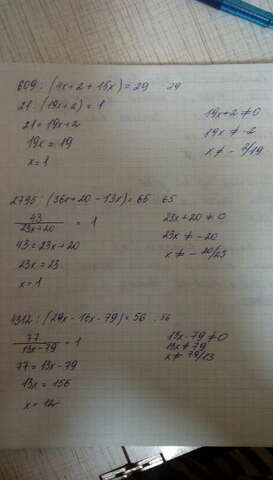 609 : (4x + 2 + 15x) = 29   29
21 : (19x + 2) = 1
21 = 19x + 2
19x = 19
x = 1
19x + 2 ≠ 0
19x ≠ -2
x ≠ - 2/19
2795 : (36x + 20 - 13x) = 65   65
43/(23x + 20) = 1
43 = 23x + 20
23x = 23
x = 1
23x + 20 ≠ 0
23x ≠ -20
x ≠ - 20/23
4312 : (29x - 16x - 79) = 56   56
77/(13x - 79) = 1
77 = 13x - 79
13x = 156
x = 12
13x - 79 ≠ 0
13x ≠ 79
x ≠ 79/13